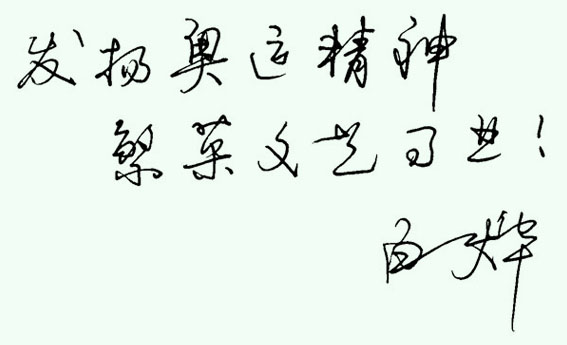 发扬奥运精神
繁荣文艺事业！
白烨